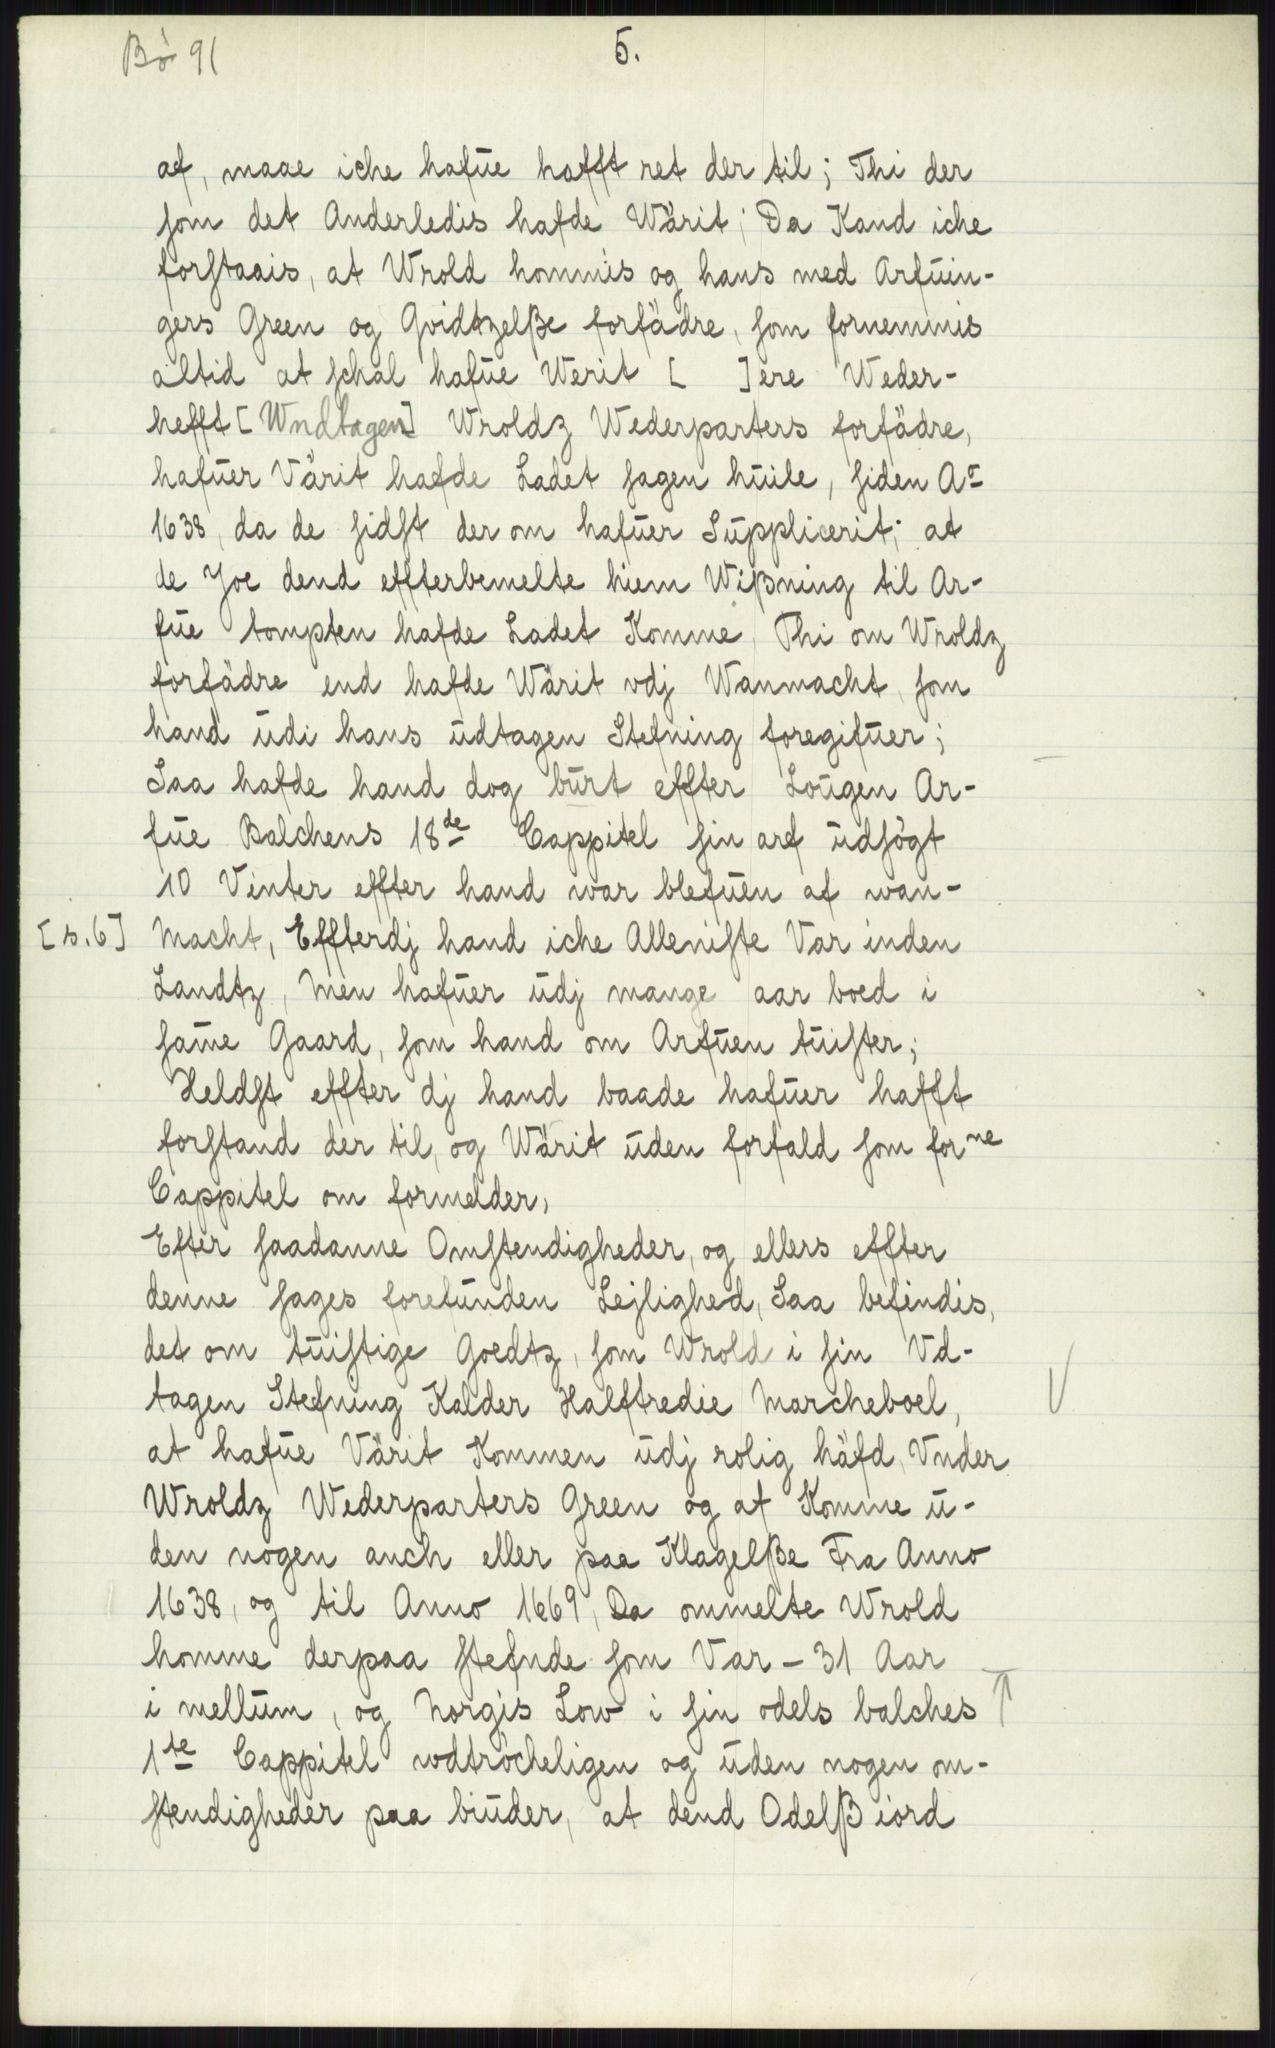 Bö 91
5.
af, maae iche hafue hafft ret der til; Thi der
som det Anderledis hafde Wärit; Da Kand iche
forstaais, at Wrold hommis og hans med Arfuin-
gers Green og Qvidtzelße forfädre, som fornemmis
altid at schal hafue Werit [ ] ere Weder-
hefft [Wndtagen] Wroldz Wederparters forfädre,
hafuer Värit hafde Ladet sagen huile, siden Ao
1638, da de sidst der om hafuer Supplicerit; at
de Joe dend effterbemelte hiem Wißning til Ar-
fue tompten hafde Ladet Komme, Thi om Wroldz
forfädre end hafde Wärit vdj Wanmacht, som
hand udi hans udtagen Stefning foregifuer;
Saa hafde hand dog burt effter Lougen Ar-
fue Balchens 18de Cappitel sin arf udsögt
10 Vinter effter hand war blefuen af wan-
[s. 6] Macht, Effterdj hand iche Alleniste Var inden
Landtz, Men hafuer udj mange aar boed i
same Gaard, som hand om Arfuen tuister;
Heldst effter dj hand baade hafuer hafft
forstand der til, og Wärit uden forfald som forne
Cappitel om formelder,
Efter saadanne Omstendigheder, og ellers effter
denne sages forefunden Lejlighed, Saa befindis,
det om tuistige Goedtz, som Wrold i sin Vd-
tagen Stefning Kalder Halftredie Marcheboel,
at hafue Värit Kommen udj rolig häfd, Vnder
Wroldz Wederparters Green og af Komme u-
den nogen anch eller paa Klagelße Fra Anno
1638, og til Anno 1669, Da ommelte Wrold
homme derpaa stefnde som Var - 31 Aar
i mellum, og Norgis Low i sin odels balches
1te Cappitel wdtröcheligen og uden nogen om-
stendigheder paa biuder, at dend Odelß iord